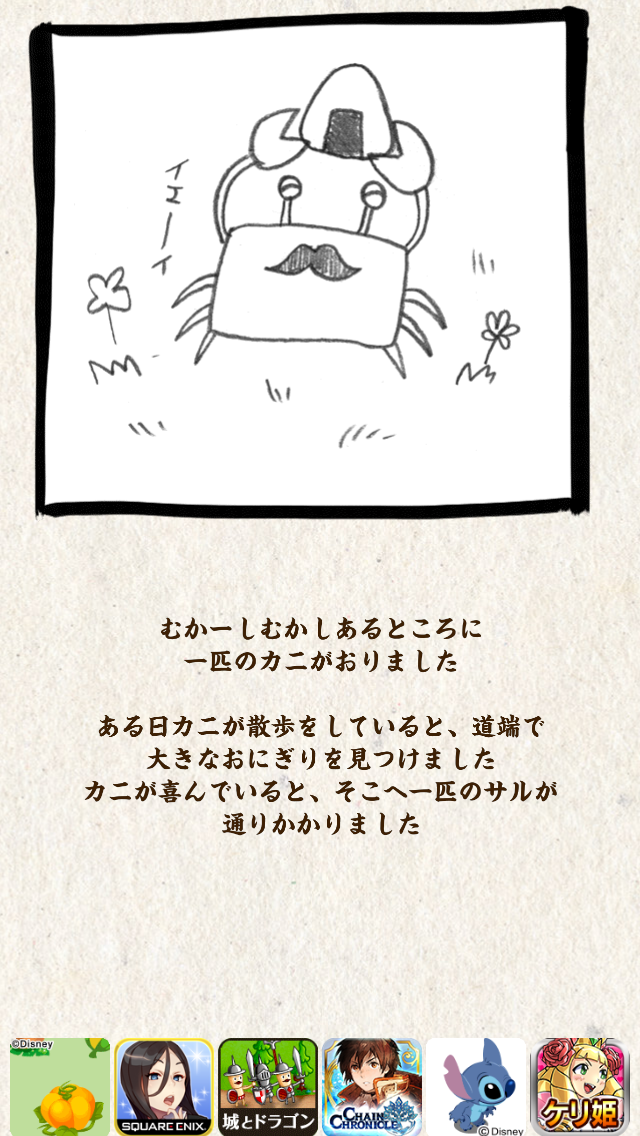 イエーイ
むかーしむかしあるところに
一匹のカニがおりました
ある日カニが散歩をしていると、道端で
大きなおにぎりを見つけました
カニが喜んでいると、そこへ一匹のサルが
通りかかりました
©Disney
SQUARE ENIX
城とドラゴン
CHAIN
CHRONICLE
©Disney
ケリ姫